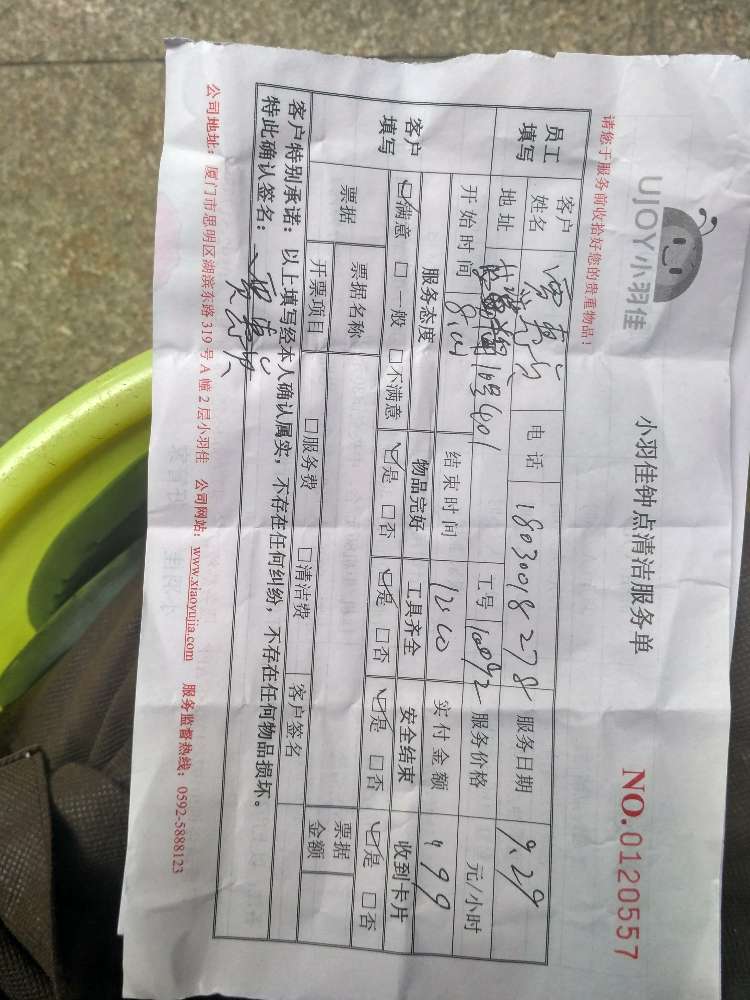 UJOY小羽佳
小羽佳钟点清洁服务单
NO.0120557
请您于服务前收拾好您的贵重物品!
员工填写 客户姓名 电话 18030018278 服务日期 9.29
地址 工号 服务价格 元/小时
客户填写 开始时间 8:00 结束时间 12:00 实付金额 199
服务态度 物品完好 工具齐全 安全结束 收到卡片
☑满意 □一般 □不满意 ☑是 □否 ☑是 □否 ☑是 □否 ☑是 □否
票据 票据名称 □服务费 □清洁费 客户签名 票据金额
开票项目
客户特别承诺:以上填写经本人确认属实,不存在任何纠纷,不存在任何物品损坏。
特此确认签名:
公司地址:厦门市思明区湖滨东路319号A幢2层小羽佳 公司网站:www.xiaoyujia.com 服务监督热线:0592-5888123